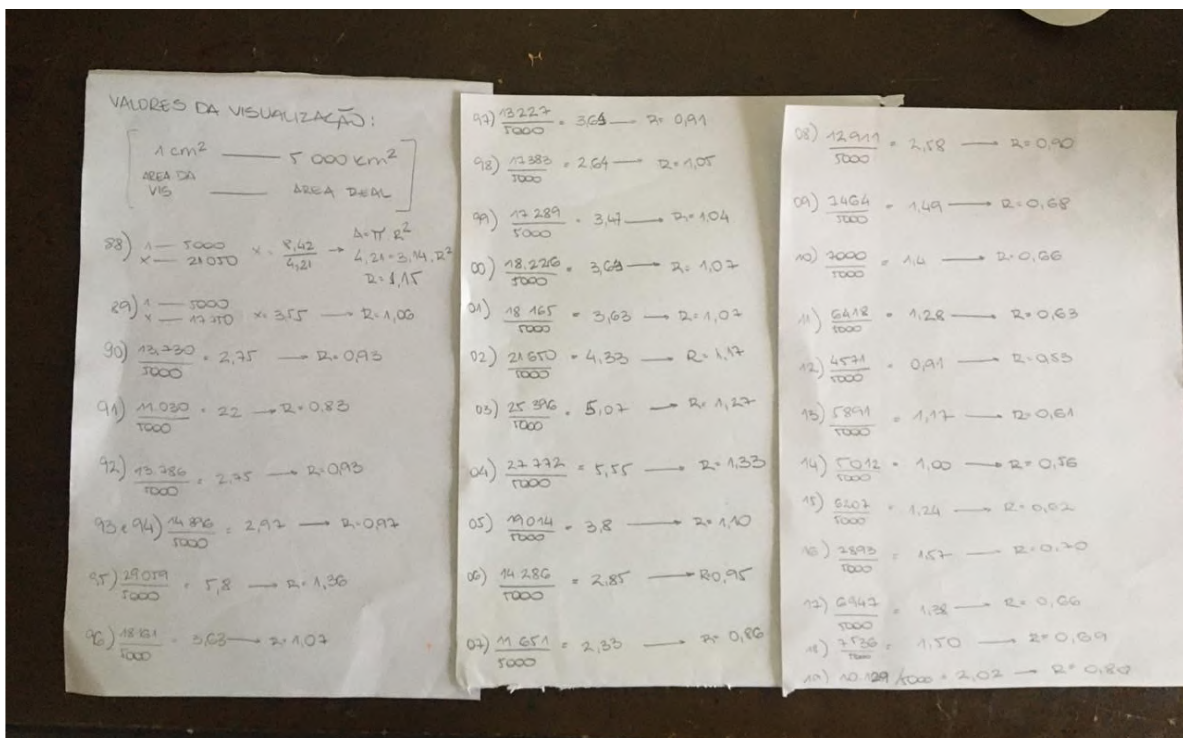 VALORES DA VISUALIZAÇÃO:
1 cm² —— 5 000 km²
AREA DA VIS —— AREA REAL
88) 1 — 5000
x — 21050
x = 8,42 / 4,21 → A = π R²
4,21 = 3,14 . R²
R = 1,15
89) 1 — 5000
x — 17770
x = 3,55 — R = 1,06
90) 13.730 / 5000 = 2,75 — R = 0,93
91) 11.030 / 5000 = 22 — R = 0,83
92) 13.786 / 5000 = 2,75 — R = 0,93
93 e 94) 14 896 / 5000 = 2,97 — R = 0,97
95) 29059 / 5000 = 5,8 — R = 1,36
96) 18161 / 5000 = 3,63 — R = 1,07
97) 13227 / 5000 = 3,64 — R = 0,91
98) 17383 / 5000 = 2,64 — R = 1,05
99) 17 289 / 5000 = 3,47 — R = 1,04
00) 18.226 / 5000 = 3,64 — R = 1,07
01) 18 165 / 5000 = 3,63 — R = 1,07
02) 21 650 / 5000 = 4,33 — R = 1,17
03) 25 396 / 5000 = 5,07 — R = 1,27
04) 27 772 / 5000 = 5,55 — R = 1,33
05) 19014 / 5000 = 3,8 — R = 1,10
06) 14.286 / 5000 = 2,85 — R 0,95
07) 11 651 / 5000 = 2,33 — R = 0,86
08) 12911 / 5000 = 2,58 — R = 0,90
09) 7464 / 5000 = 1,49 — R = 0,68
10) 7000 / 5000 = 1,4 — R = 0,66
11) 6418 / 5000 = 1,28 — R = 0,63
12) 4571 / 5000 = 0,91 — R = 0,53
13) 5891 / 5000 = 1,17 — R = 0,61
14) 5012 / 5000 = 1,00 — R = 0,56
15) 6207 / 5000 = 1,24 — R = 0,62
16) 7893 / 5000 = 1,57 — R = 0,70
17) 6947 / 5000 = 1,38 — R = 0,66
18) 7536 / 5000 = 1,50 — R = 0,69
19) 10.129 / 5000 = 2,02 — R = 0,80